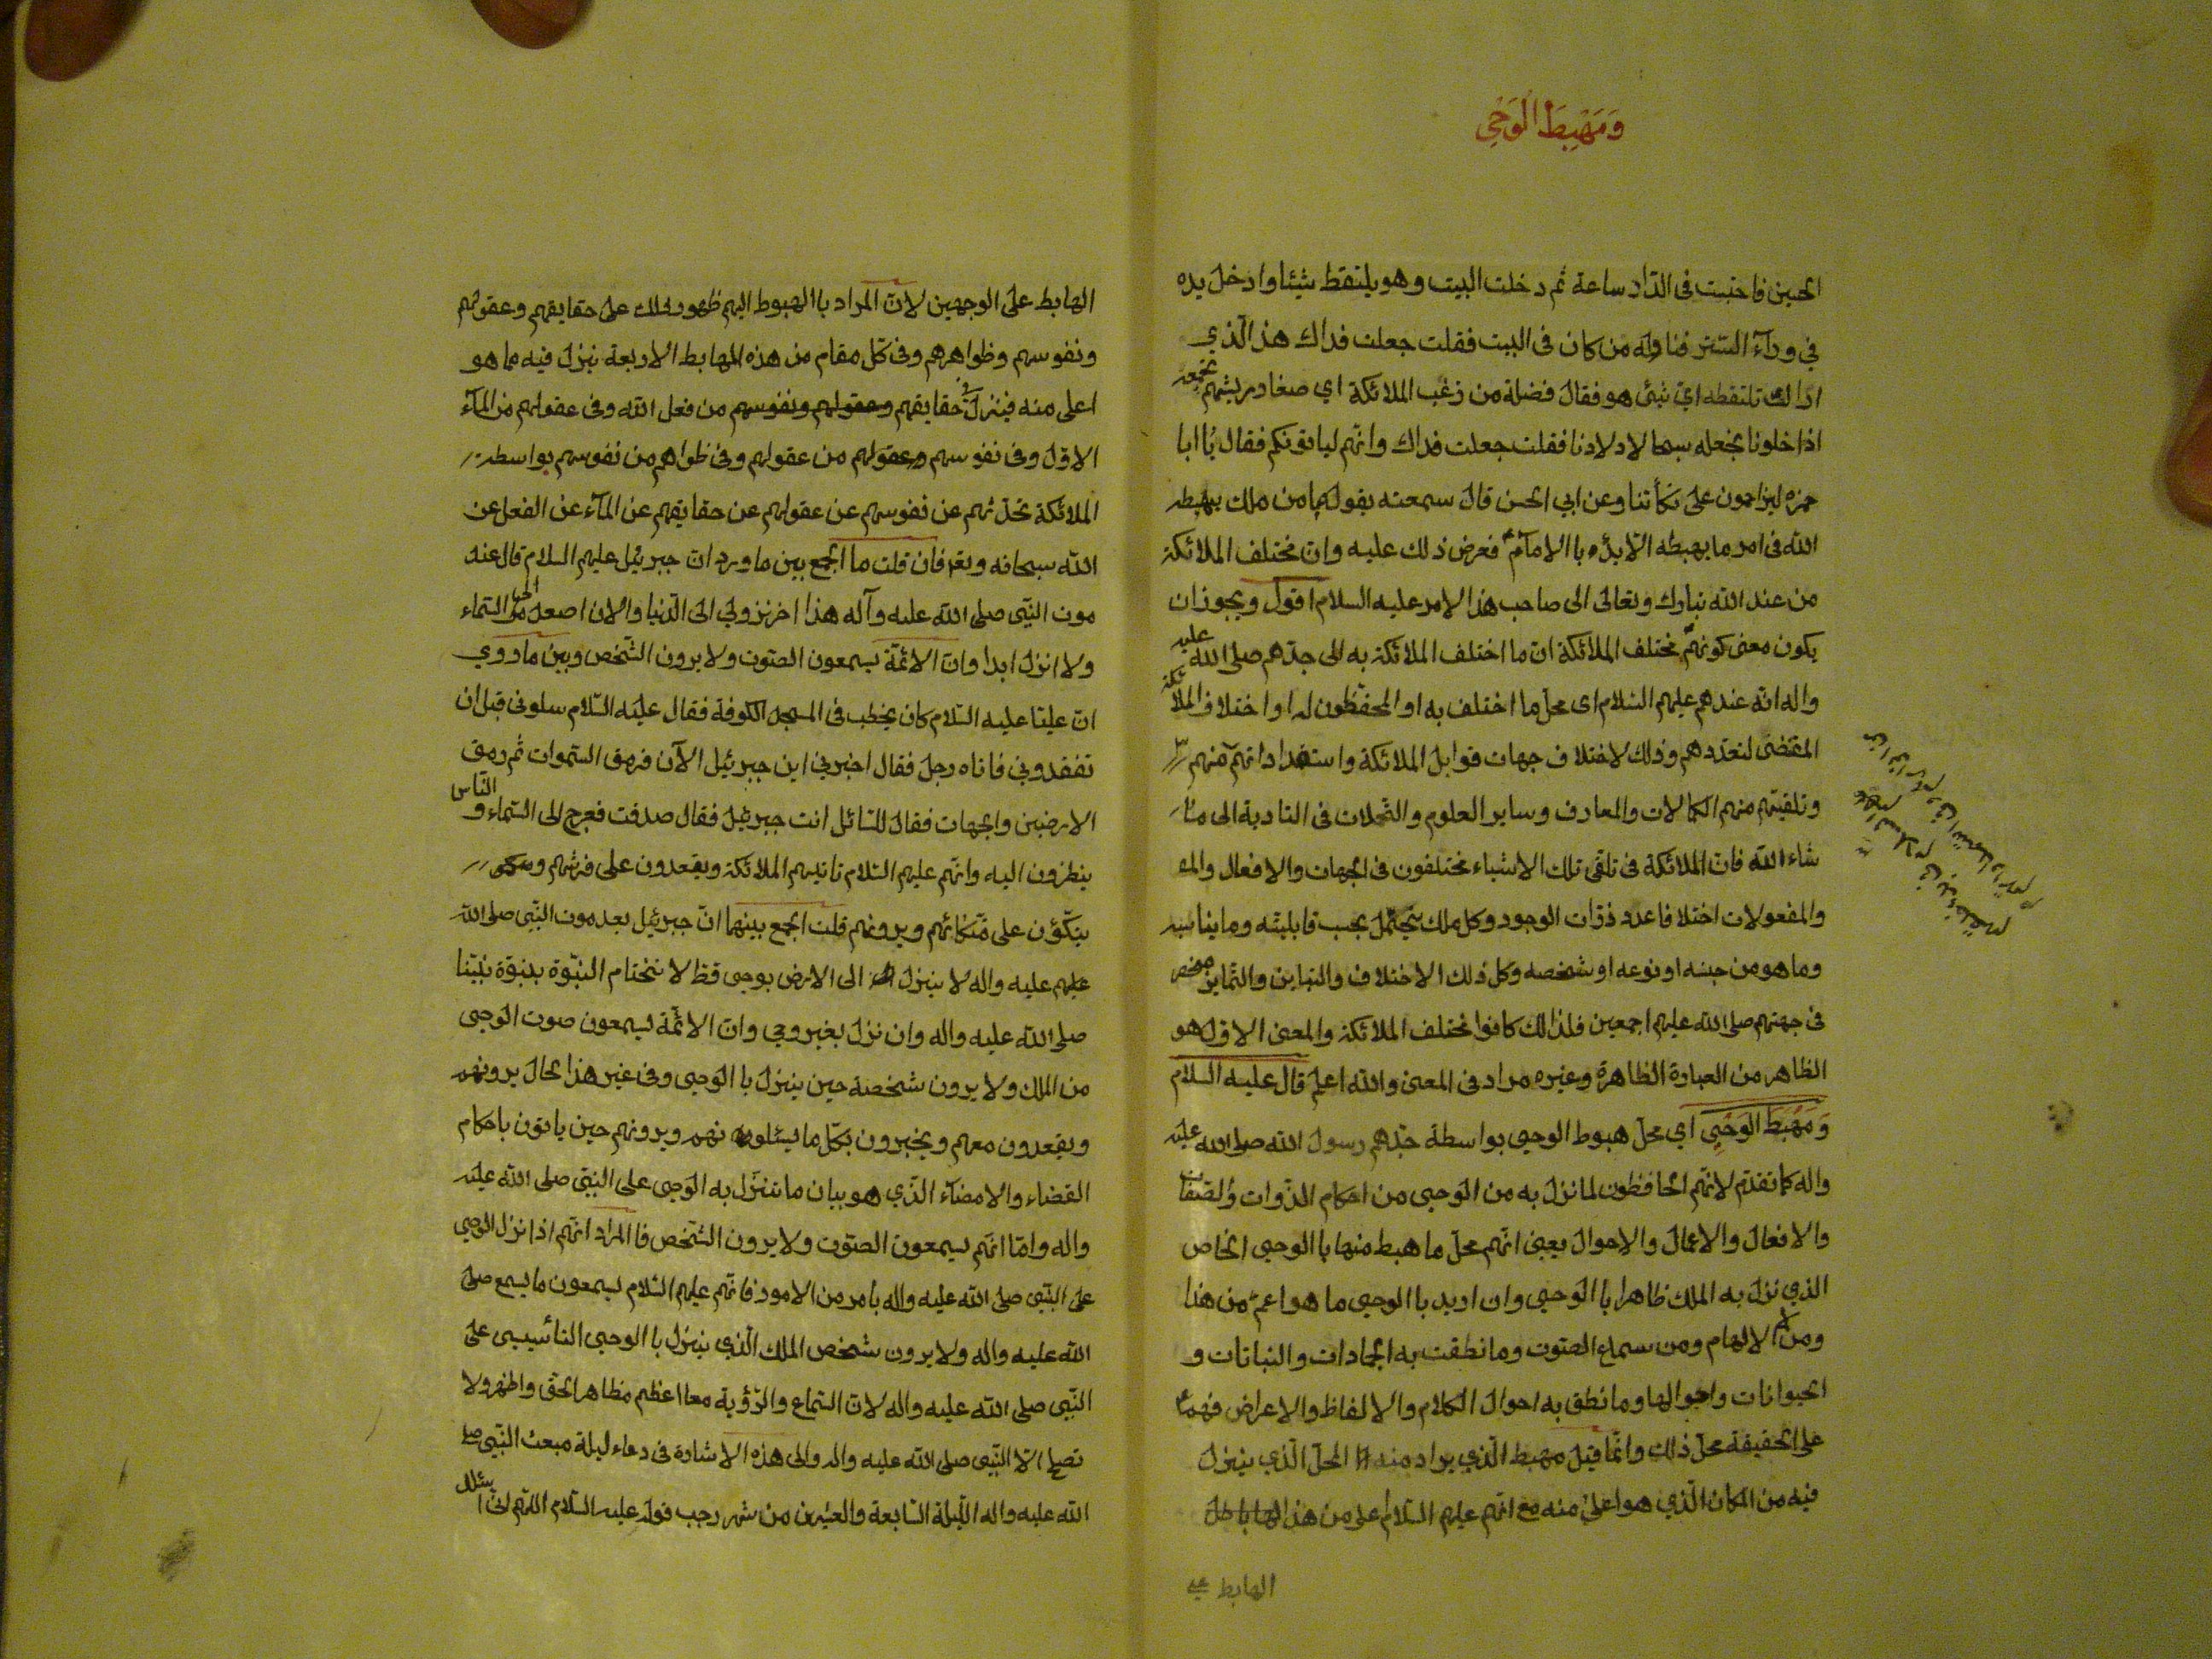 وَمَهْبِطَ الْوَحْيِ
الحسين فاحتبست فى الدّار ساعة ثم دخلت البيت وهو يلتقط شيئا وادخل يده
في ورآء الستر فناوله من كان فى البيت فقلت جعلت فداك هذا الّذي
اراك تلتقطه ايّ شئ هو فقال فضلة من زغب الملائكة اي صغار ريشهم نجمعه
اذا خلونا نجعله سبحا لاولادنا فقلت جعلت فداك وانّهم لياتونكم فقال يا ابا
حمزه ليزاحمون على تكأتنا وعن ابي الحسن قال سمعته يقول ما من ملك يهبطه
الله فى امر ما يهبطه الّا بدء با الامام فعرض ذلك عليه وانّ مختلف الملائكة
من عند الله تبارك وتعالى الى صاحب هذا الامر عليه السلام اقول ويجوز ان
يكون معنى كونهم مختلف الملائكة انّ ما اختلف الملائكة به الى جدّهم صلى الله عليه
واله انّه عندهم عليهم السّلام اى محلّ ما اختلف به او المحفظون له او اختلاف الملائكة
المقتضى لتعدّدهم وذلك لاختلاف جهات قوابل الملائكة واستعداداتهم منهم
وتلقيهم منهم الكمالات والمعارف وساير العلوم والتحملات فى التادية الى من
شاء الله فانّ الملائكة فى تلقى تلك الاشياء مختلفون فى الجهات والافعال
والمفعولات اختلافا عدد ذرّات الوجود وكل ملك يتحمّل بحسب قابليّته وما يناسبه
وما هو من جنسه او نوعه او شخصه وكل ذلك الاختلاف والتباين والتمايز
فى جهتهم صلى الله عليهم اجمعين فلذلك كانوا مختلف الملائكة والمعنى الاوّل هو
الظاهر من العبارة الظاهرة وغيره مراد فى المعنى والله اعلم قال عليه السلام
وَمَهْبَطَ الوَحْيِ اي محلّ هبوط الوحى بواسطة جدّهم رسول الله صلى الله عليه
واله كما تقدّم لانّهم الحافظون لما نزل به من الوحى من احكام الذّوات والصّفات
والافعال والاعمال والاحوال يعنى انّهم محلّ ما هبط منها با الوحى الخاص
الذي نزل به الملك ظاهرا با الوحى وان اريد با الوحى ما هو اعمّ من هذا
ومن الالهام ومن سماع الصّوت وما نطقت به الجمادات والنباتات و
الحيوانات واحوالها وما نطق به احوال الكلام والالفاظ والاعراض فهم
على الحقيقة محلّ ذلك وانّما قيل مهبط الّذي يراد منه المحلّ الّذي ينزل
فيه من المكان الّذي هو اعلى منه مع انّهم عليهم السّلام اعلى من هذا
الهابط
الهابط على الوجهين لانّ المراد با الهبوط اليهم ظهور ذلك على حقايقهم وعقولهم
ونفوسهم وظواهرهم وفى كلّ مقام من هذه المهابط الاربعة ينزل فيه مما هو
اعلى منه فينزل فى حقايقهم وعقولهم ونفوسهم من فعل الله وفى عقولهم من المآء
الاوّل وفى نفوسهم وعقولهم من عقولهم وفى ظواهرهم من نفوسهم بواسطة
الملائكة تحدّثهم عن نفوسهم عن عقولهم عن حقايقهم عن المآء عن الفعل عن
الله سبحانه وتعا فان قلت ما الجمع بين ما ورد انّ جبرئيل عليهم السلام قال عند
موت النّبى صلى الله عليه وآله هذا اخر نزولي الى الدّنيا والان اصعد الى السّماء
ولا انزل ابدا وانّ الائمّة يسمعون الصّوت ولا يرون الشّخص وبين ما روي
انّ عليّا عليه السّلام كان يخطب فى المسجد الكوفة فقال عليه السّلام سلونى قبل ان
تفقدوني فاتاه رجل فقال اخبرني اين جبرئيل الآن فرمق السّموات ثم رمق
الارضين والجهات فقال للسّائل انت جبرئيل فقال صدقت فعرج الى السّماء والنّاس
ينظرون اليه وانّهم عليهم السّلام تاتيهم الملائكة ويقعدون على فرشهم و
يتكؤن على متّكائهم ويرونهم قلت الجمع بينهما انّ جبرئيل بعد موت النّبى صلى الله
عليهم عليه واله لا ينزل الى الارض بوحى قط لاختتام النبّوة بنبوّة نبيّنا
صلى الله عليه واله وان نزل بغير وحى وانّ الائمّة يسمعون صوت الوحى
من الملك ولا يرون شخصه حين ينزل با الوحى وفى غير هذا الحال يرونهم
ويقعدون معهم ويخبرون بكلّ ما يسئلونهم ويرونهم حين ياتون باحكام
القضاء والامضآء الذّي هو بيان ما تنزّل به الوحى على النّبى صلى الله عليه
واله وامّا انّهم يسمعون الصّوت ولا يرون الشّخص فا المراد انّهم اذا نزل الوحى
على النّبى صلى الله عليه واله بأمر من الامور فانّهم عليهم السّلام يسمعون ما يسمع صلى
الله عليه واله ولا يرون شخص الملك الّذي ينزل با الوحى التأسيسى على
النّبى صلى الله عليه واله لانّ السّماع والرّؤية معا اعظم مظاهر الحقّ واظهر ولا
تصلح الّا النّبى صلى الله عليه واله والى هذه الاشارة فى دعاء ليلة مبعث النّبى صلى
الله عليه واله اللّيلة السّابعة والعشرين من شهر رجب قوله عليه السّلام اللّهم انّى اسئلك